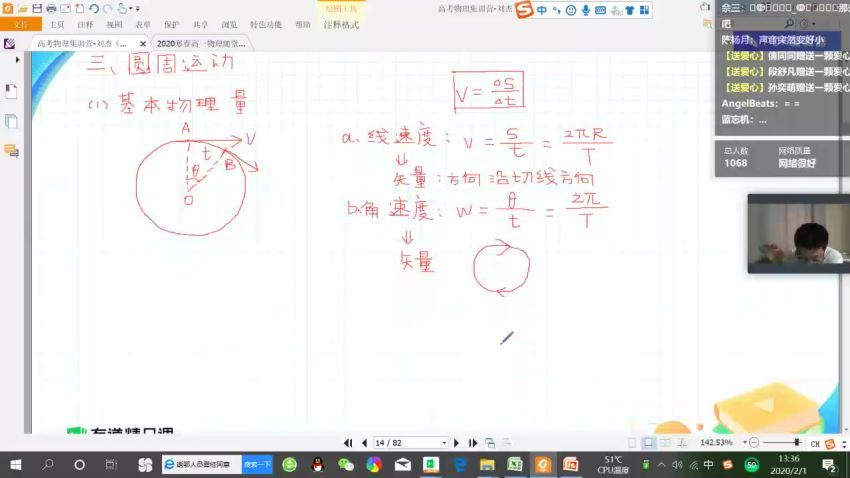 绘图工具
高考物理集训营-刘杰
文件
主页
视图
表单
保护
共享
浏览
特色功能
帮助
注释格式
高考物理集训营-刘杰（...
2020寒春高一物理随堂...
三、圆周运动
(1) 基本物理量
A
V
t
B
θ
O
V = ΔS/Δt
a. 线速度: V = S/t = 2πR/T
⇓
矢量: 方向沿切线方向
b. 角速度: W = θ/t = 2π/T
⇓
矢量
有道精品课
萨扬月: 声音突然变好小
【送爱心】倩同同赠送一颗爱心
【送爱心】段舒凡赠送一颗爱心
【送爱心】孙奕萌赠送一颗爱心
AngelBeats: = =
蓝忘机: ...
总人数
网络质量
1068
网络很好
14 / 82
142.53%
CH
搜索一下
51℃
CPU温度
中
50
13:36
2020/2/1